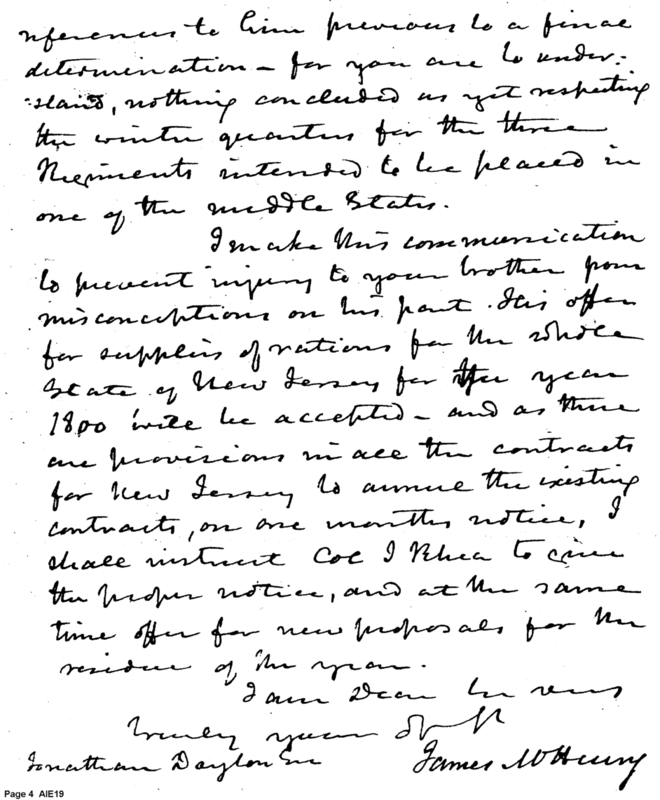 references to him previous to a final
determination — for you are to under-
-stand, nothing concluded as yet respecting
the winter quarters for the three
Regiments intended to be placed in
one of the middle States.
I make this communication
to prevent injury to your brother from
misconceptions on his part. His offer
for supplies of rations for the whole
State of New Jersey for the year
1800 will be accepted — and as there
are provisions in all the contracts
for New Jersey to annul the existing
contracts, on one months notice, I
shall instruct Col J Rhea to give
the proper notice, and at the same
time offer for new proposals for the
residue of the year.
I am Dear Sir very
truly your
Jonathan Dayton Esr
James McHenry
Page 4 AIE19